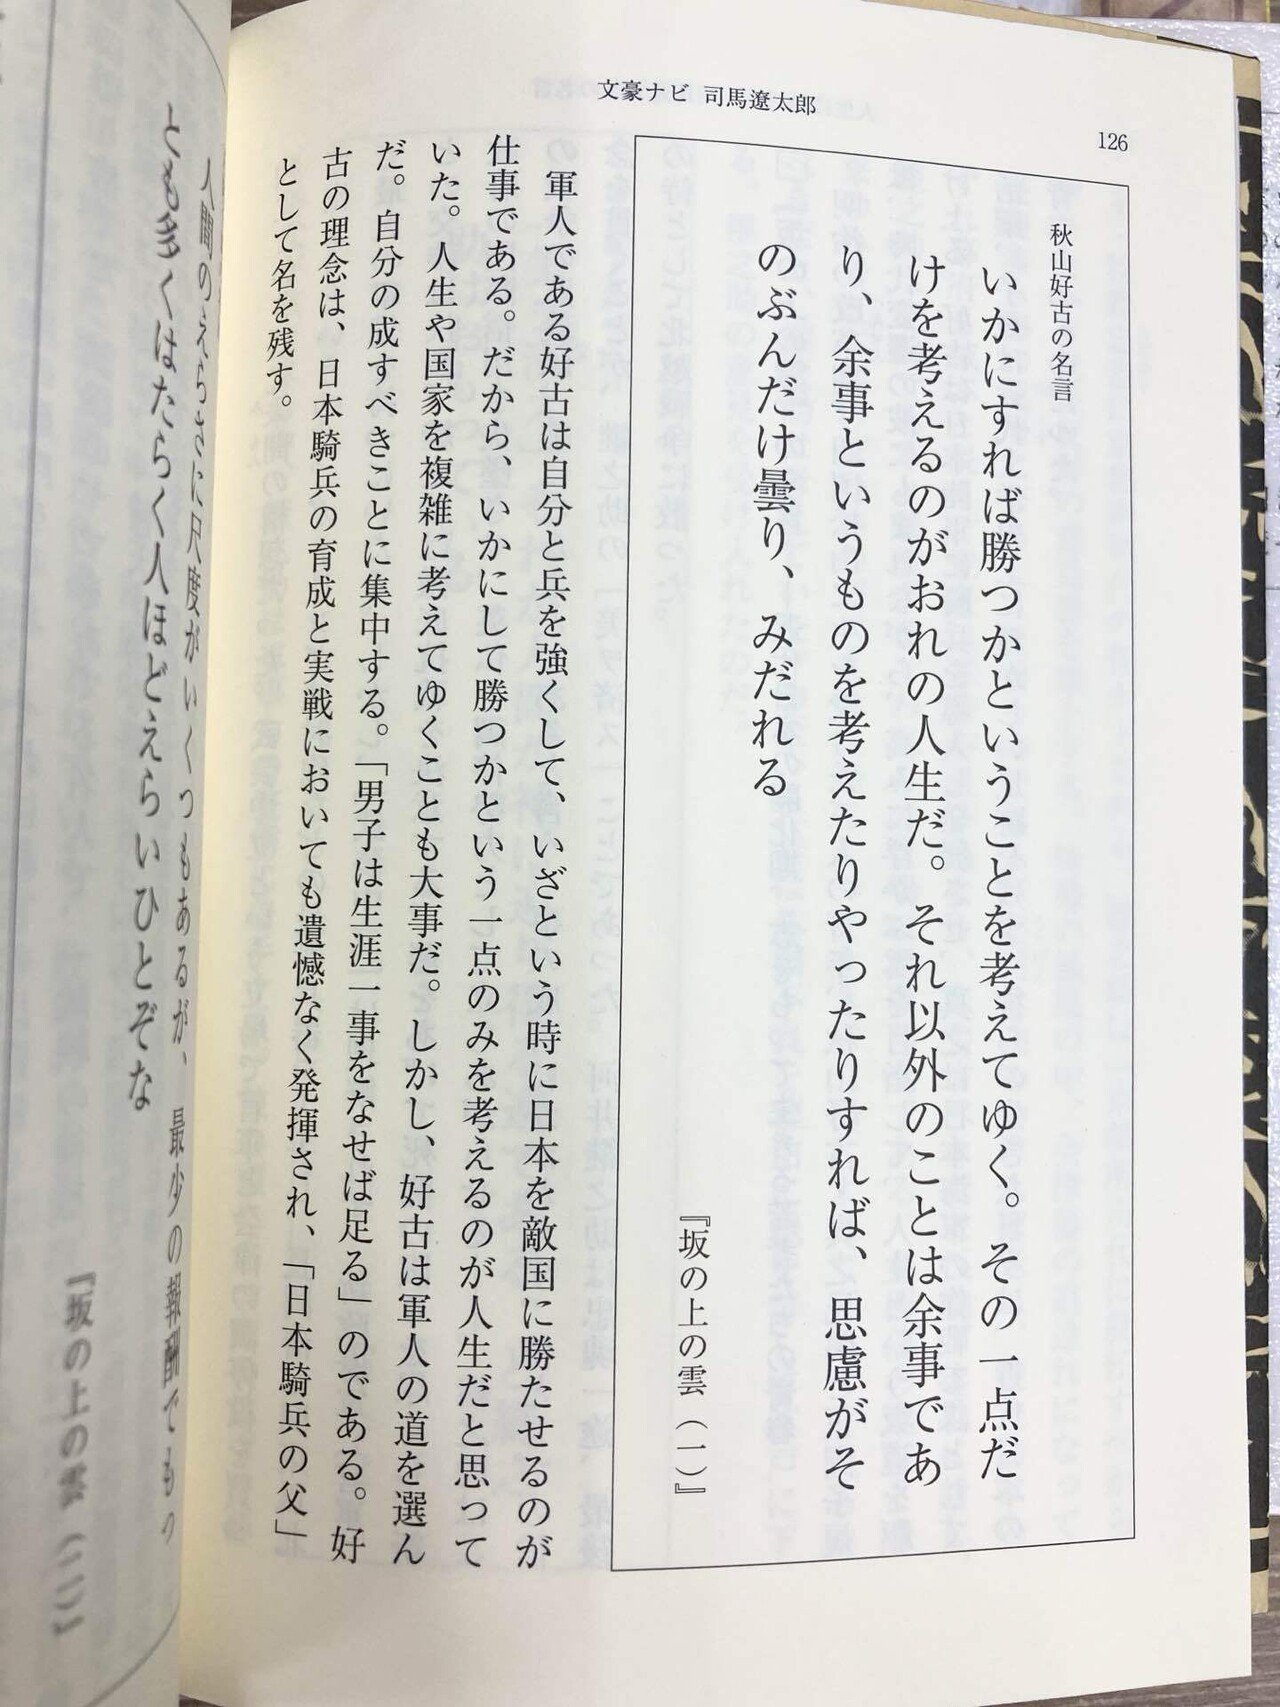 文豪ナビ 司馬遼太郎
126
秋山好古の名言
いかにすれば勝つかということを考えてゆく。その一点だ
けを考えるのがおれの人生だ。それ以外のことは余事であ
り、余事というものを考えたりやったりすれば、思慮がそ
のぶんだけ曇り、みだれる
『坂の上の雲（一）』
軍人である好古は自分と兵を強くして、いざという時に日本を敵国に勝たせるのが
仕事である。だから、いかにして勝つかという一点のみを考えるのが人生だと思って
いた。人生や国家を複雑に考えてゆくことも大事だ。しかし、好古は軍人の道を選ん
だ。自分の成すべきことに集中する。「男子は生涯一事をなせば足る」のである。好
古の理念は、日本騎兵の育成と実戦においても遺憾なく発揮され、「日本騎兵の父」
として名を残す。
人間のえらさに尺度がいくつもあるが、最少の報酬でもっ
とも多くはたらく人ほどえらいひとぞな
『坂の上の雲（二）』